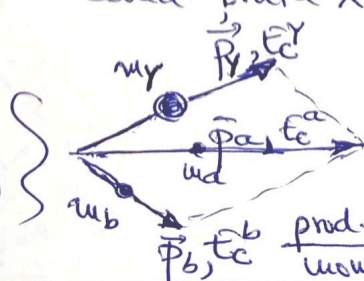 m_Y
p⃗_Y, E_c^Y
p̄_a, E_c^a
m_a
m_b
p⃗_b, E_c^b
prod.
mom